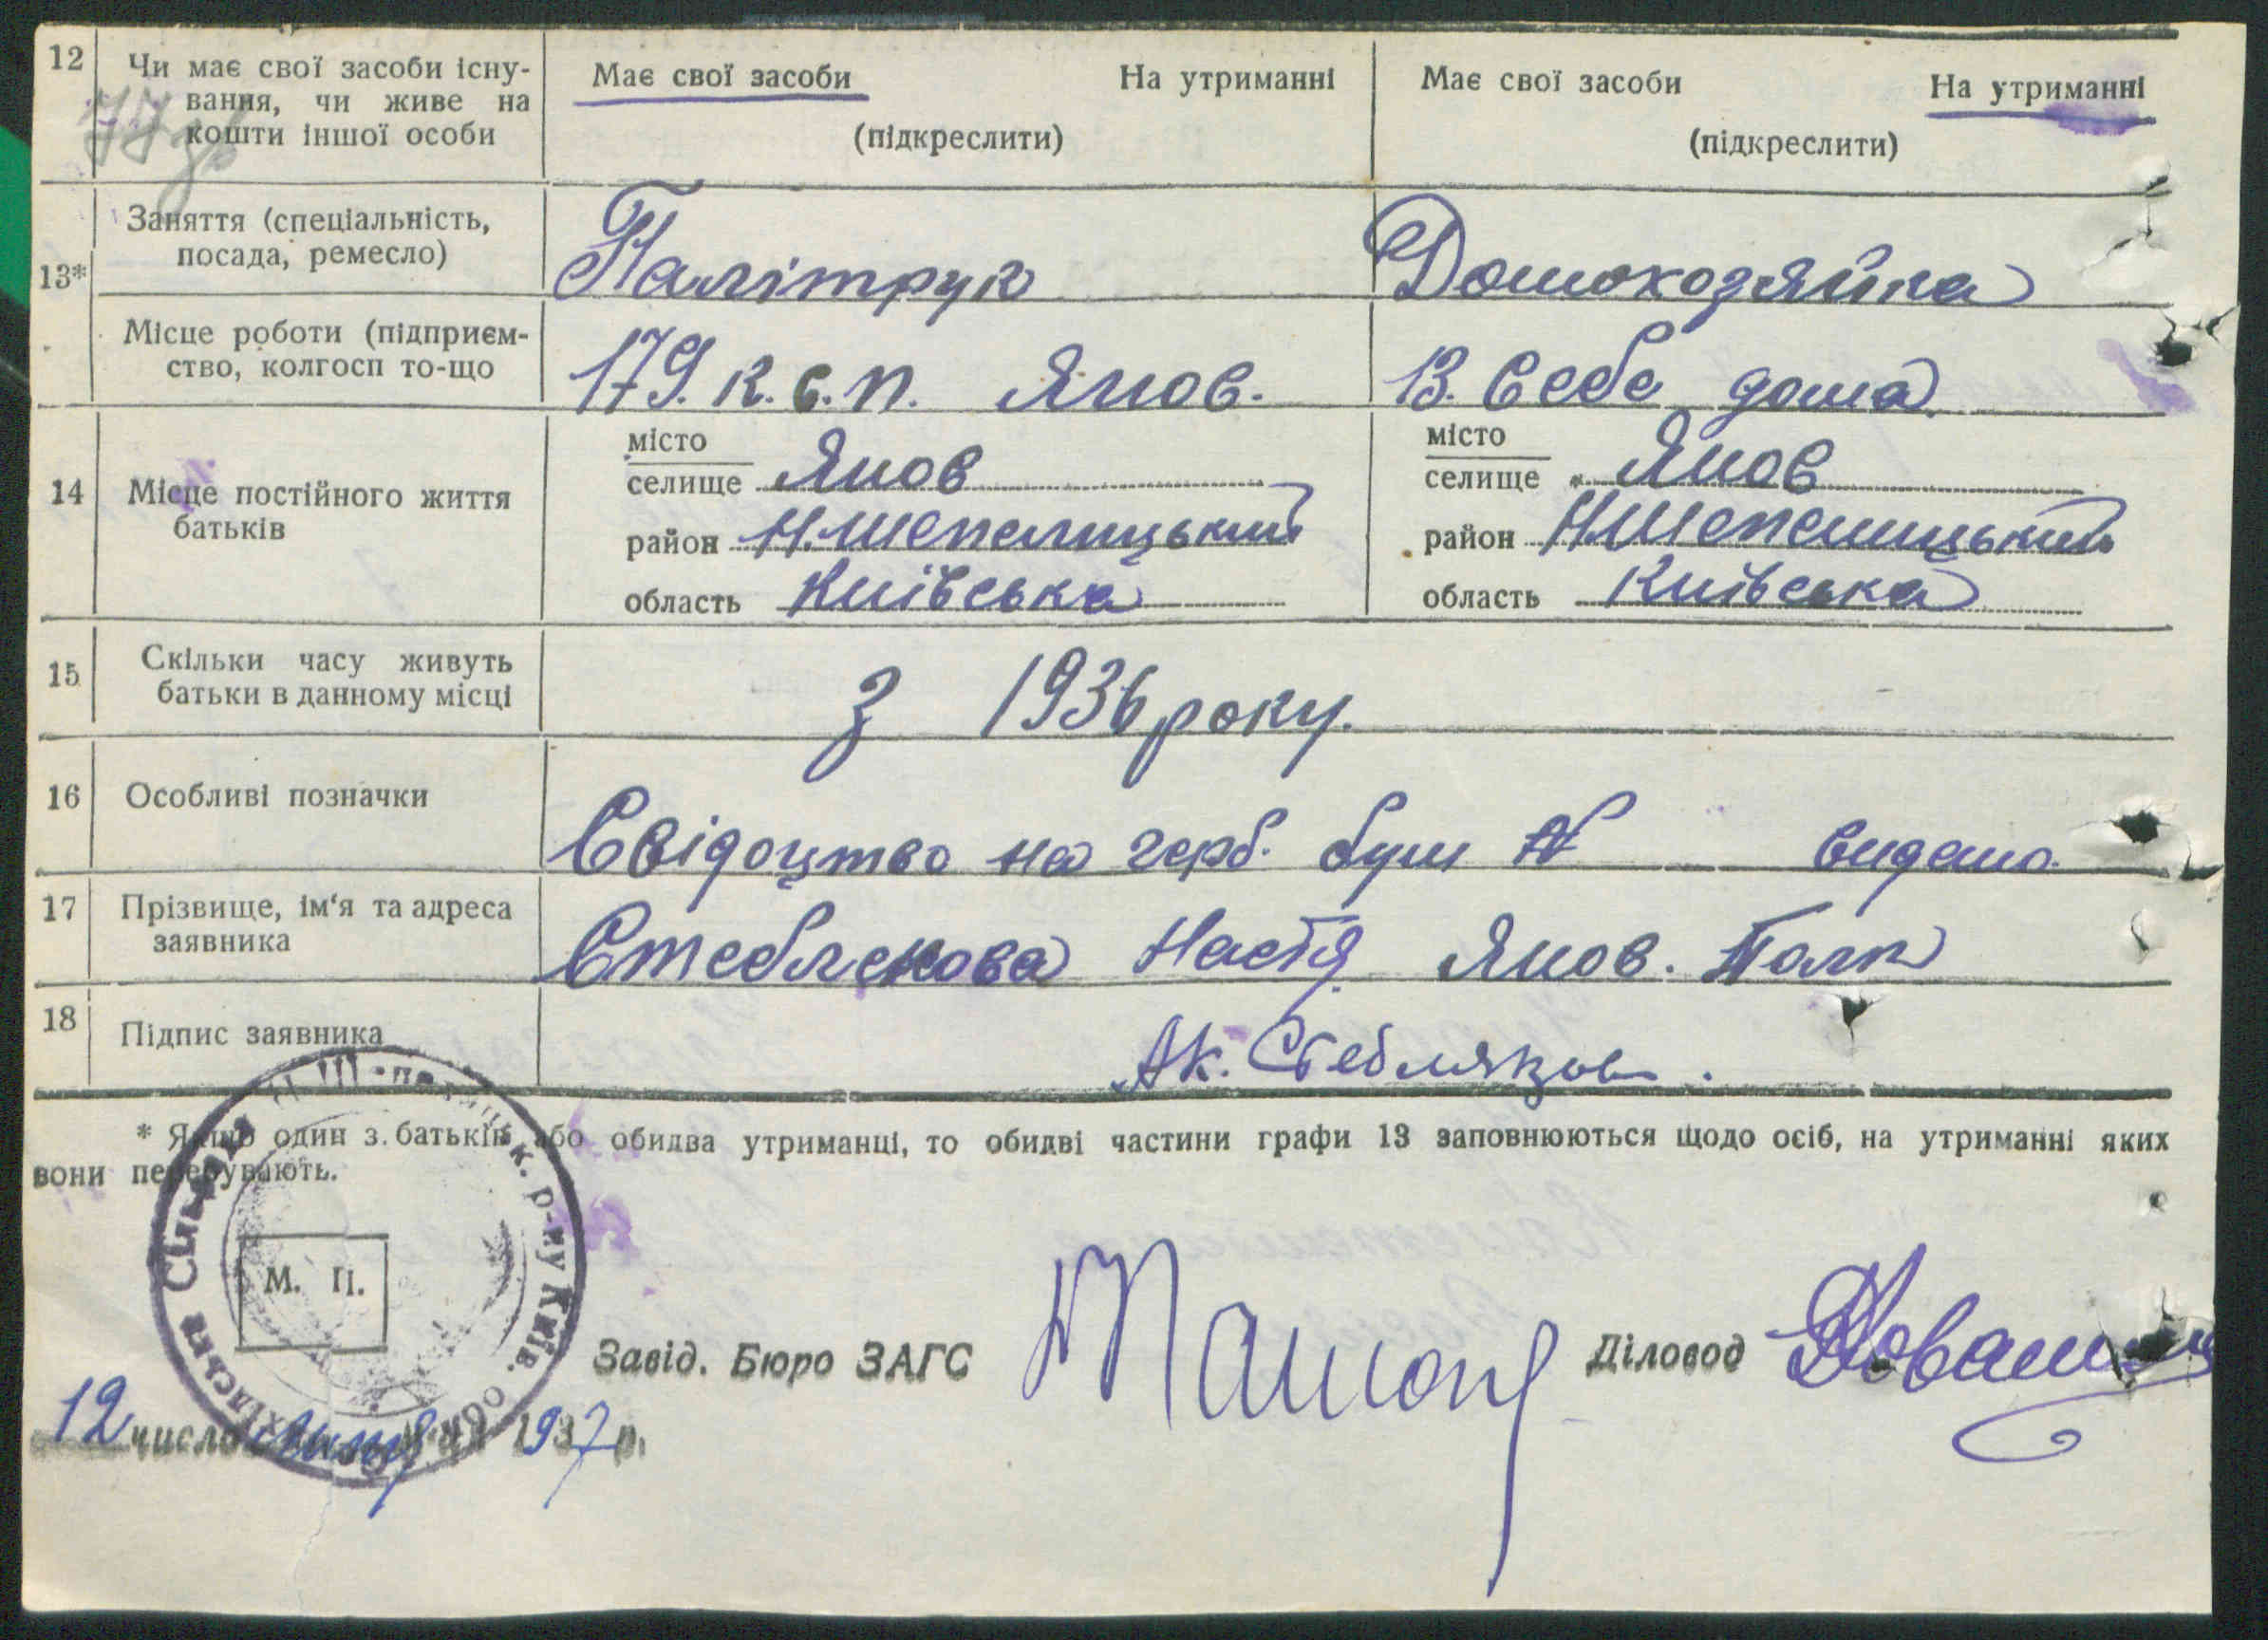 12 Чи має свої засоби існу- Має свої засоби На утриманні Має свої засоби На утриманні
вання, чи живе на
кошти іншої особи (підкреслити) (підкреслити)
Заняття (спеціальність, Палітрук Домохозяйка
посада, ремесло)
13*
Місце роботи (підприєм- 179. к. с. п. Янов. В. себе дома
ство, колгосп то-що
14 Місце постійного життя батьків
місто місто
селище Янов селище Янов
район Н.Шепелицький район НШепелицький
область Київська область Київська
15 Скільки часу живуть з 1936 року.
батьки в данному місці
16 Особливі позначки
Свідоцтво на герб. бум № видано
17 Прізвище, ім'я та адреса
заявника Стеблекова Настя Янов. Полк
18 Підпис заявника Ак. Стеблякова.
* Якщо один з батьків або обидва утриманці, то обидві частини графи 13 заповнюються щодо осіб, на утриманні яких
вони перебувають.
Сільська р-ну Київ. обл.
М. П.
Завід. Бюро ЗАГС Діловод
12 число 1937 р.